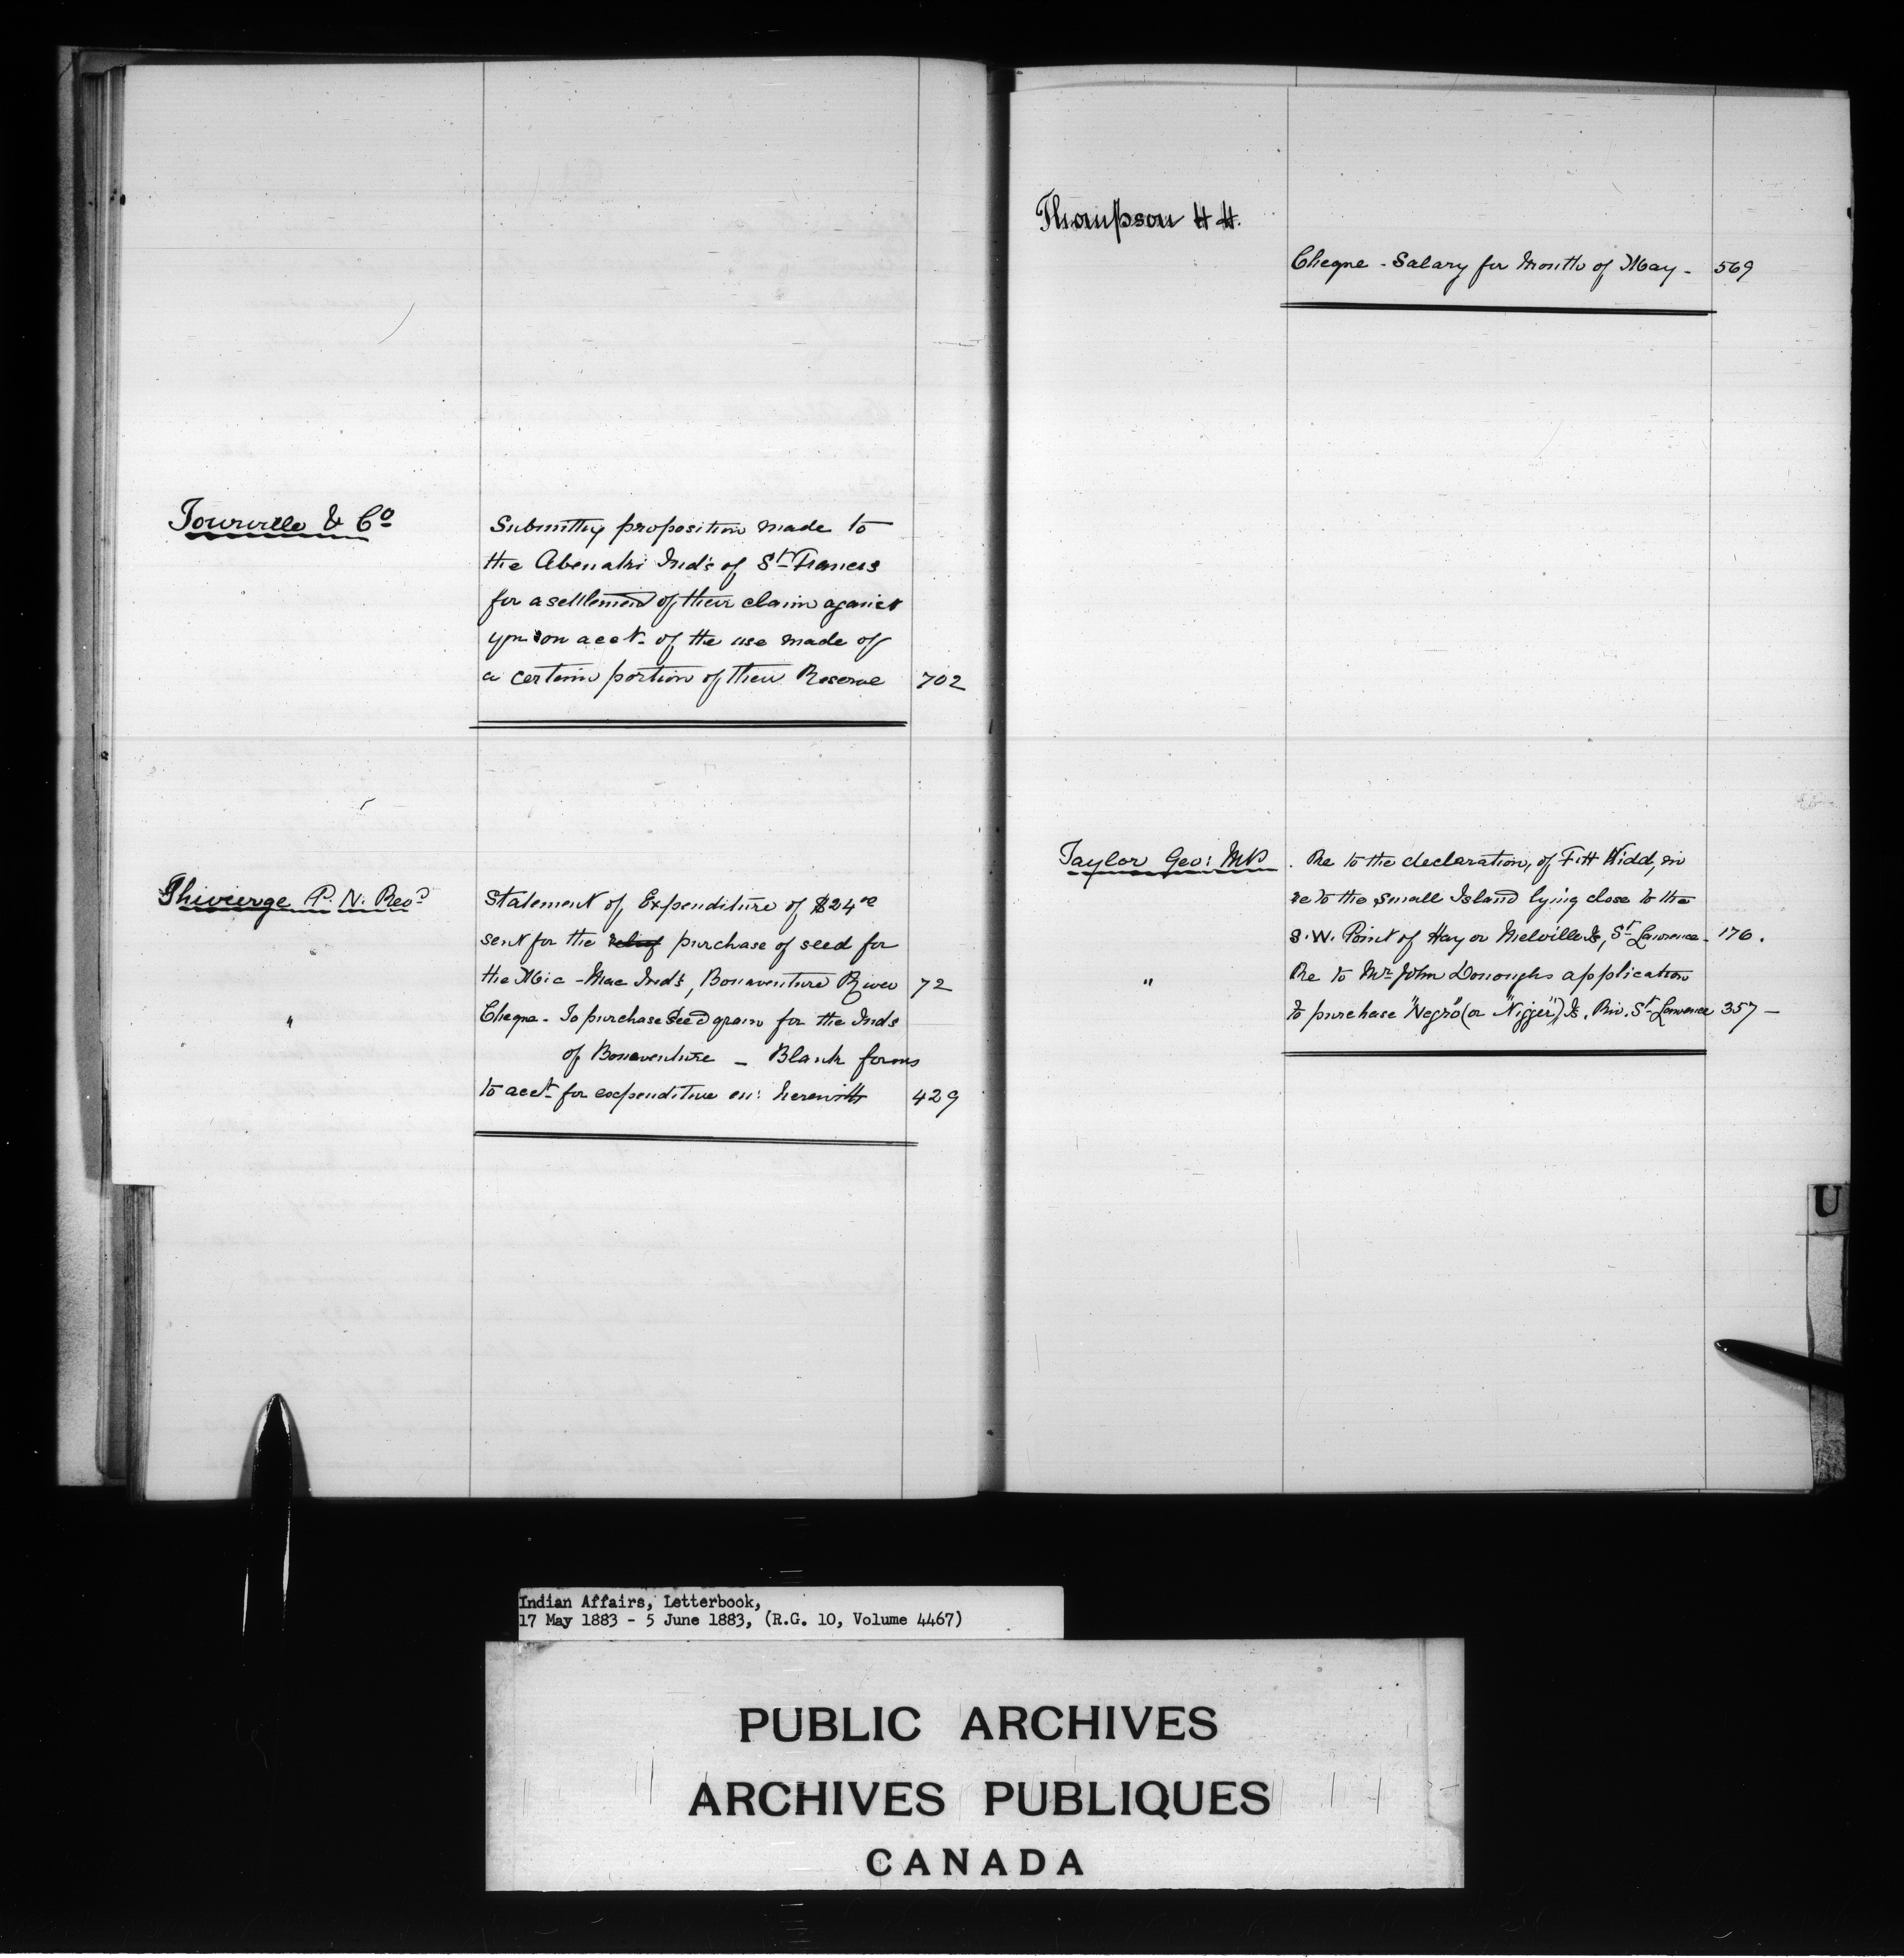 Tourville & Co
Submittg proposition made to
the Abenaki Ind's of St Francis
for a settlement of their claim against
ym on acct. of the use made of
a certain portion of their Reserve 702
Thivierge P. N. Revd
Statement of Expenditure of $24 00
sent for the relief purchase of seed for
the Mic-Mac Ind's, Bonaventure River 72
" Cheque. To purchase Seed grain for the Inds
of Bonaventure _ Blank forms
to acct for expenditure en: herewith 429
Thompson H H.
Cheque - Salary for Month of May - 569
Taylor Geo: MP . Re to the declaration, of F. H Kidd, in
re to the small Island lying close to the
S.W. Point of Hay or Melville Is, St Lawrence - 176.
" Re to Mr John Donoughs application
to purchase "Negro" (or "Nigger") Is. Riv. St Lawrence 357 -
U
Indian Affairs, Letterbook,
17 May 1883 - 5 June 1883, (R.G. 10, Volume 4467)
PUBLIC ARCHIVES
ARCHIVES PUBLIQUES
CANADA